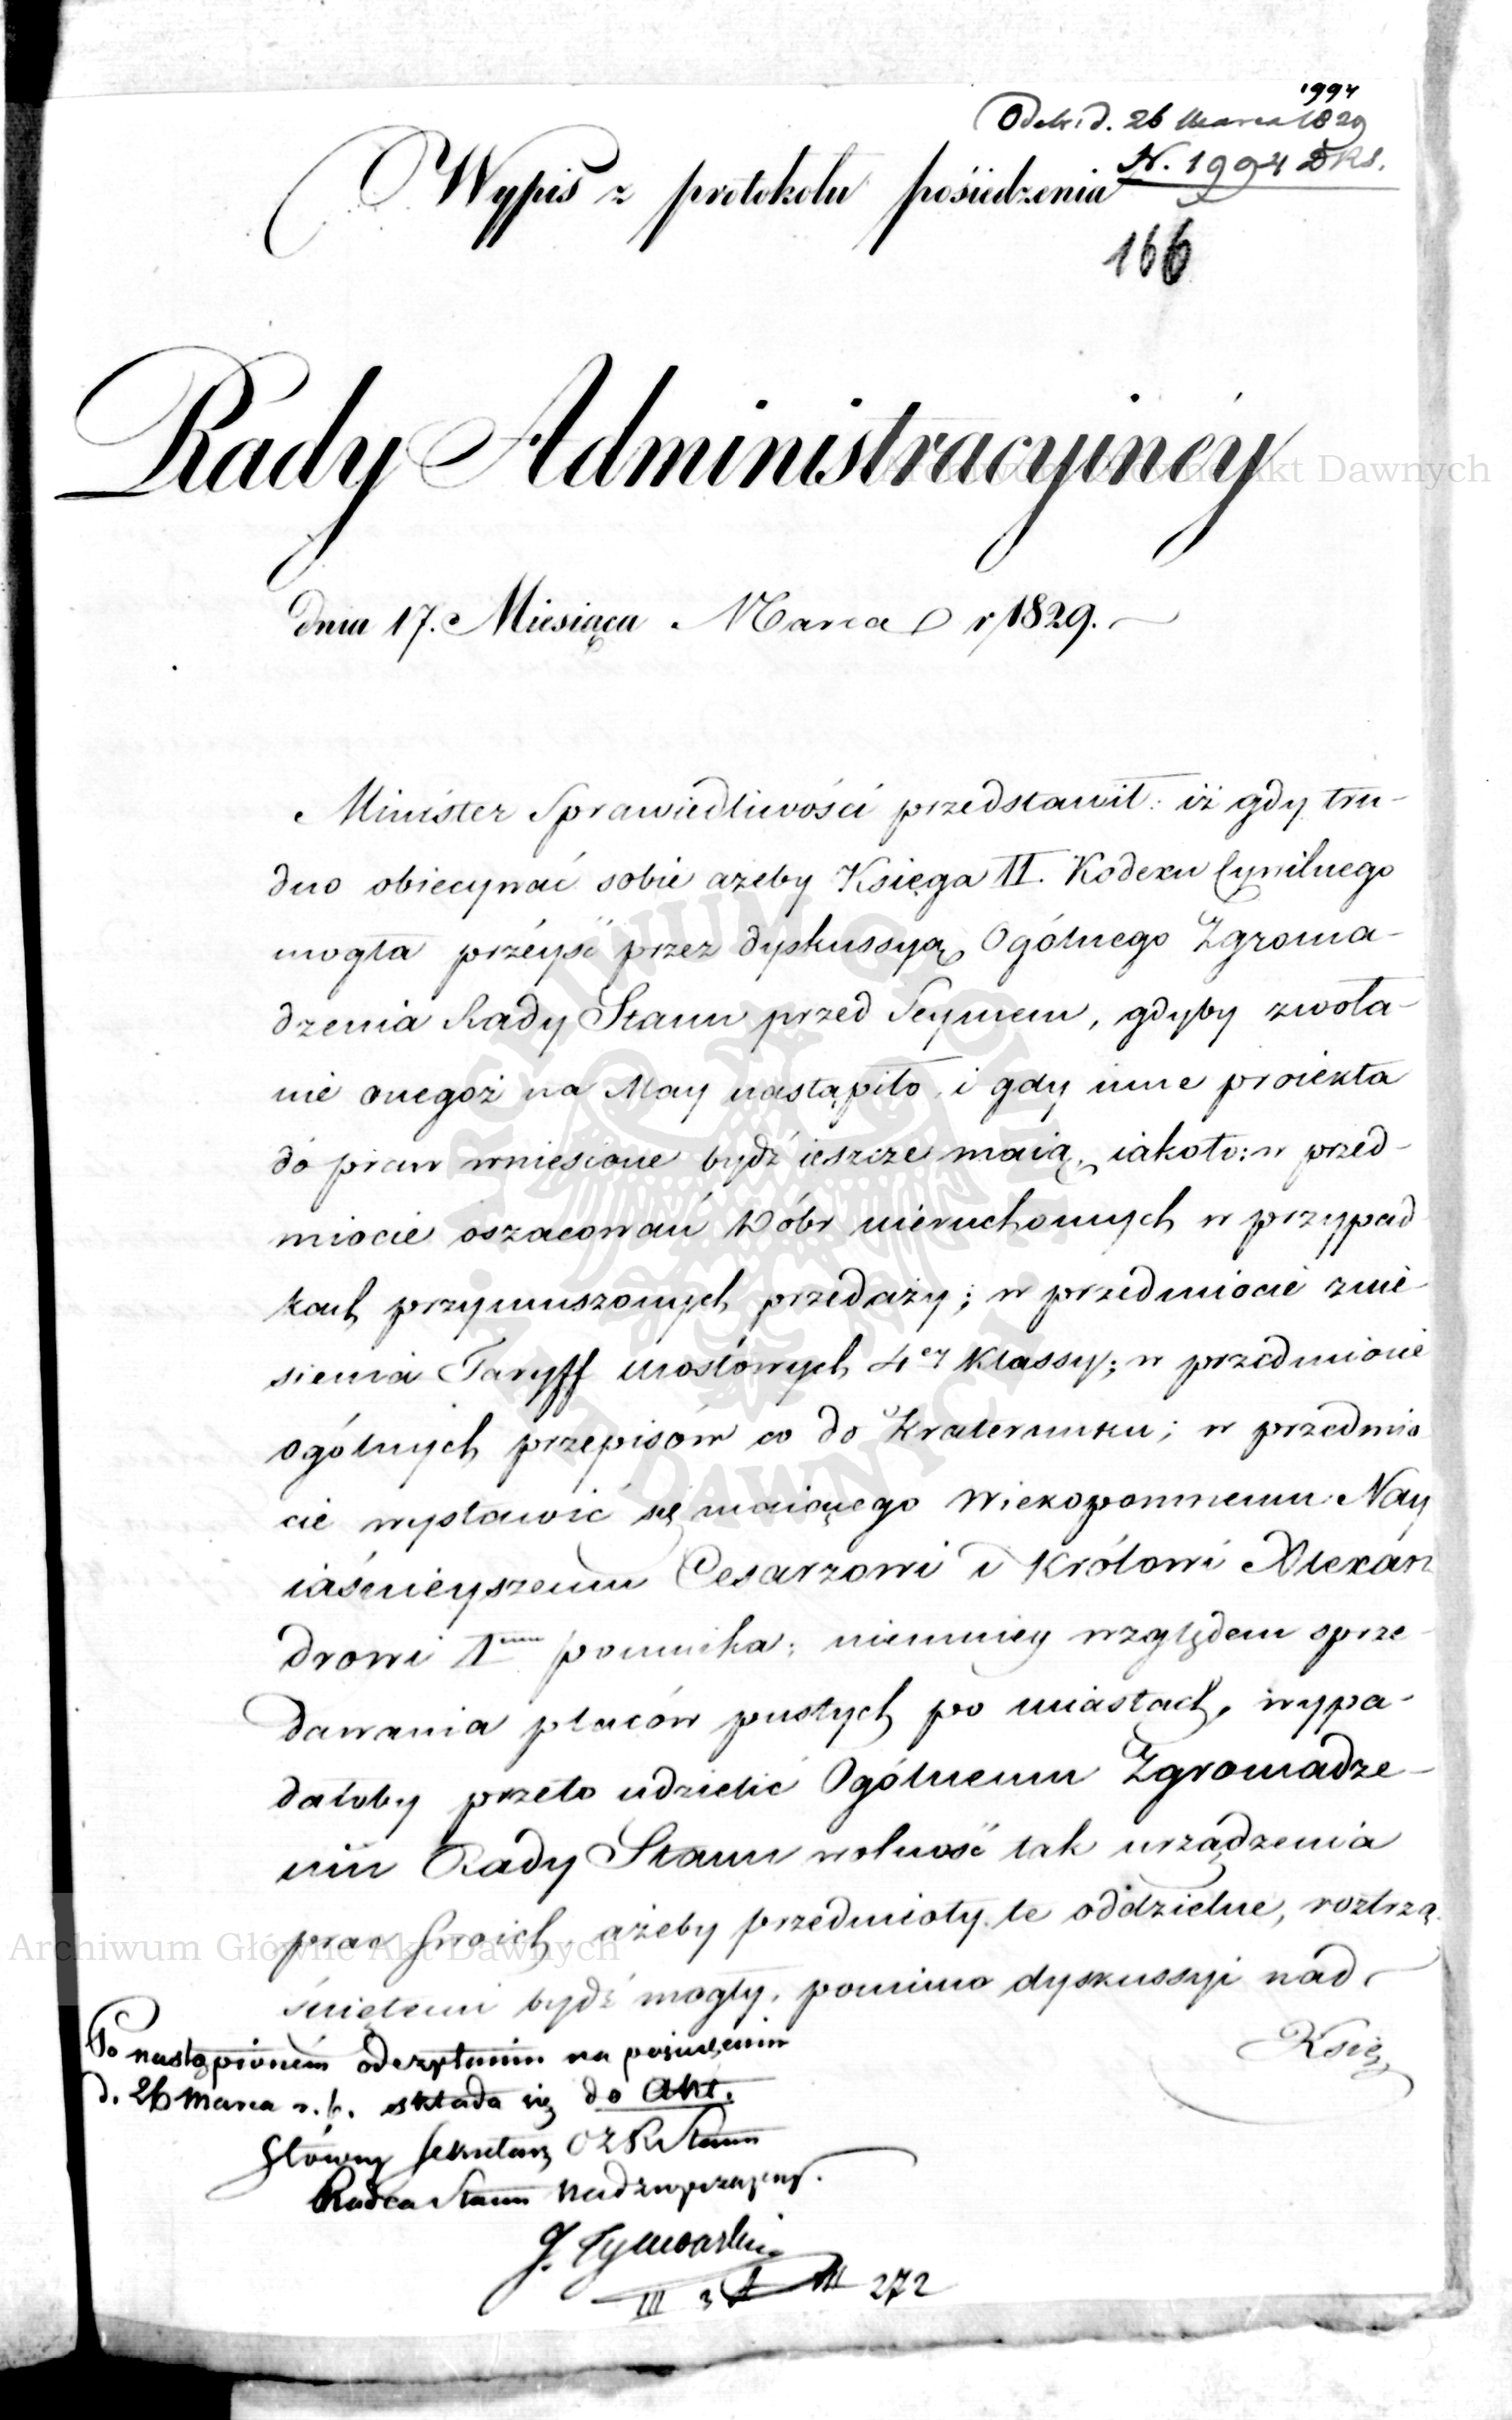 1994
Odebr. d. 26 Marca 1829
Wypis z protokołu posiedzenia
N. 1994 DKS.
166
Rady Administracyinéy
dnia 17. Miesiąca Marca r 1829.
Minister Sprawiedliwości przedstawił: iż gdy tru-
dno obiecywać sobie ażeby Księga II. Kodexu Cywilnego
mogła przéyść przez dyskussyą Ogólnego Zgroma-
dzenia Rady Stanu przed Seymem, gdyby zwoła-
nie onegoż na May nastąpiło, i gdy inne proiekta
do praw wniesione bydź ieszcze maią, iakoto: w przed-
miocie oszacowań Dóbr nieruchomych w przypad
kach przymuszonych przedaży; w przedmiocie znie
sienia Taryff mostowych 4ey Klassy; w przedmiocie
ogólnych przepisów co do Kwaterunku; w przedmio
cie wystawić się maiącego Wiekopomnemu Nay
iaśnieyszemu Cesarzowi i Królowi Alexan
drowi 1mu pomnika; niemniey względem sprze-
dawania placów pustych po miastach, wypa-
dałoby przeto udzielić Ogólnemu Zgromadze-
niu Rady Stanu wolność tak urządzenia
prac swoich, ażeby przedmioty te oddzielne, roztrzą
śnietemi bydź mogły, pomimo dyskussyi nad
Księ
Po nastąpioném odczytaniu na posiedzeniu
d. 26 Marca r. b. składa się do Akt.
Główny Sekretarz OZR Stanu
Radca Stanu Nadzwyczajny.
J. Tymowski
III 3 272
Archiwum Główne Akt Dawnych
Archiwum Główne Akt Dawnych
ARCHIWUM GŁÓWNE AKT DAWNYCH